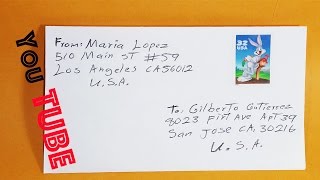 YOU
TUBE
From: Maria Lopez
510 Main ST #59
Los Angeles CA 56012
U.S.A.
32
USA
To: Gilberto Gutierrez
8023 Fift Ave Apt 39
San Jose CA. 30216
U.S.A.